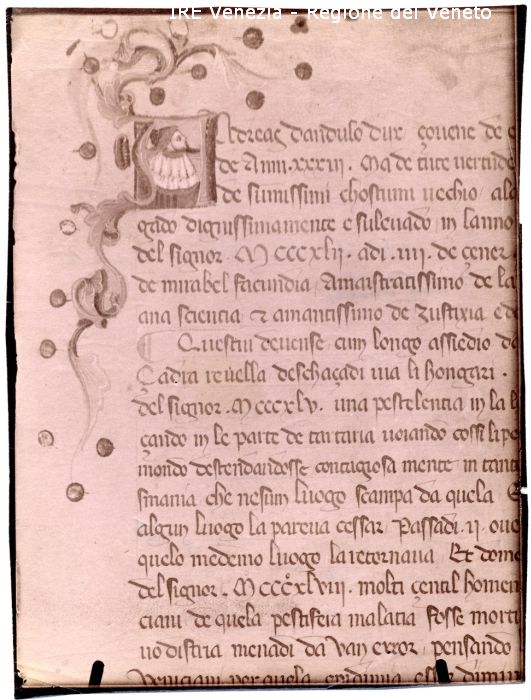 IRE Venezia - Regione del Veneto
Andreas dandulo dux çovene de
de Anni .xxxvi. Ma de tute vertude
de sumissimi chostumi vechio alo
gado dignissimamente e sulevado in lanno
del signor . M CCCXLII . adi . IIII . de çener
de mirabel facundia Amaistratissimo de la
ana sciencia & amantissimo de zustixia e de
Questui devense cum longo assiedio de
Çadra revella deschaçadi via li hongari .
del signor . M CCCXLV . una pestelencia in la
çando in le parte de tartaria voiando cossi li per
mondo destendandosse contagiosa mente in tanta
smania che nesun luogo scampa da quela E
algun luogo la pareva cessar Passadi . II . ove
quelo medemo luogo la retornava Et dome
del signor . M CCCXLVIII . molti çentil homen
ciani de quela pestifera malatia fosse morti
vo distria menadi da van error pensando
Veniciani per quela